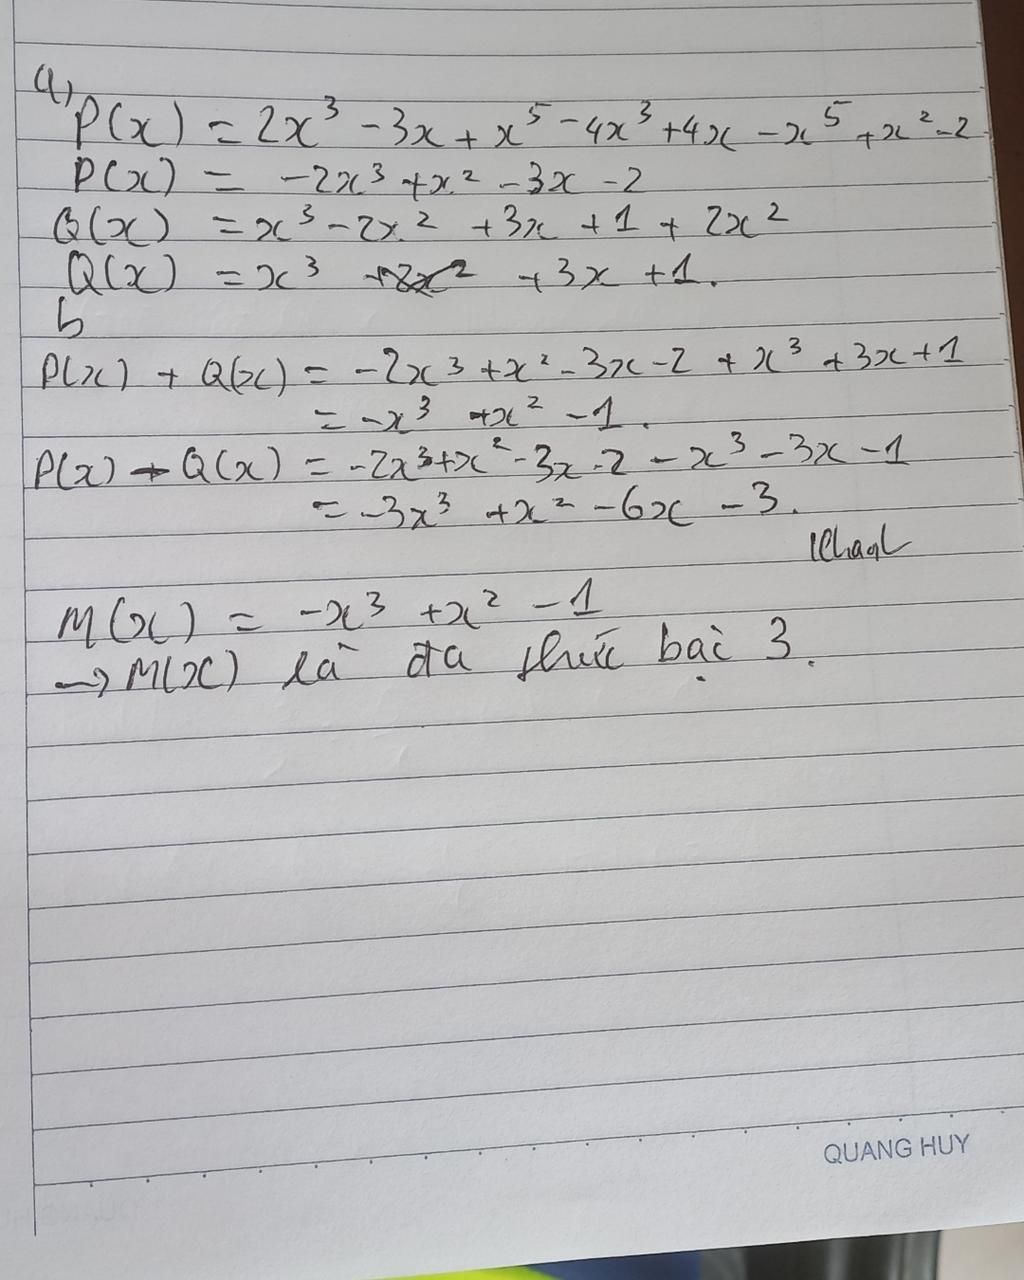 a,
P(x) = 2x³ - 3x + x⁵ - 4x³ + 4x - x⁵ + x² - 2
P(x) = -2x³ + x² - 3x - 2
Q(x) = x³ - 2x² + 3x + 1 + 2x²
Q(x) = x³ + 3x + 1.
b
P(x) + Q(x) = -2x³ + x² - 3x - 2 + x³ + 3x + 1
= -x³ + x² - 1.
P(x) - Q(x) = -2x³ + x² - 3x - 2 - x³ - 3x - 1
= -3x³ + x² - 6x - 3.
M(x) = -x³ + x² - 1
→ M(x) là đa thức bậc 3.
QUANG HUY